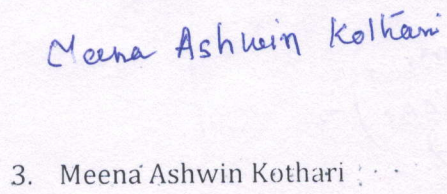 Meena Ashwin Kothari
3. Meena Ashwin Kothari